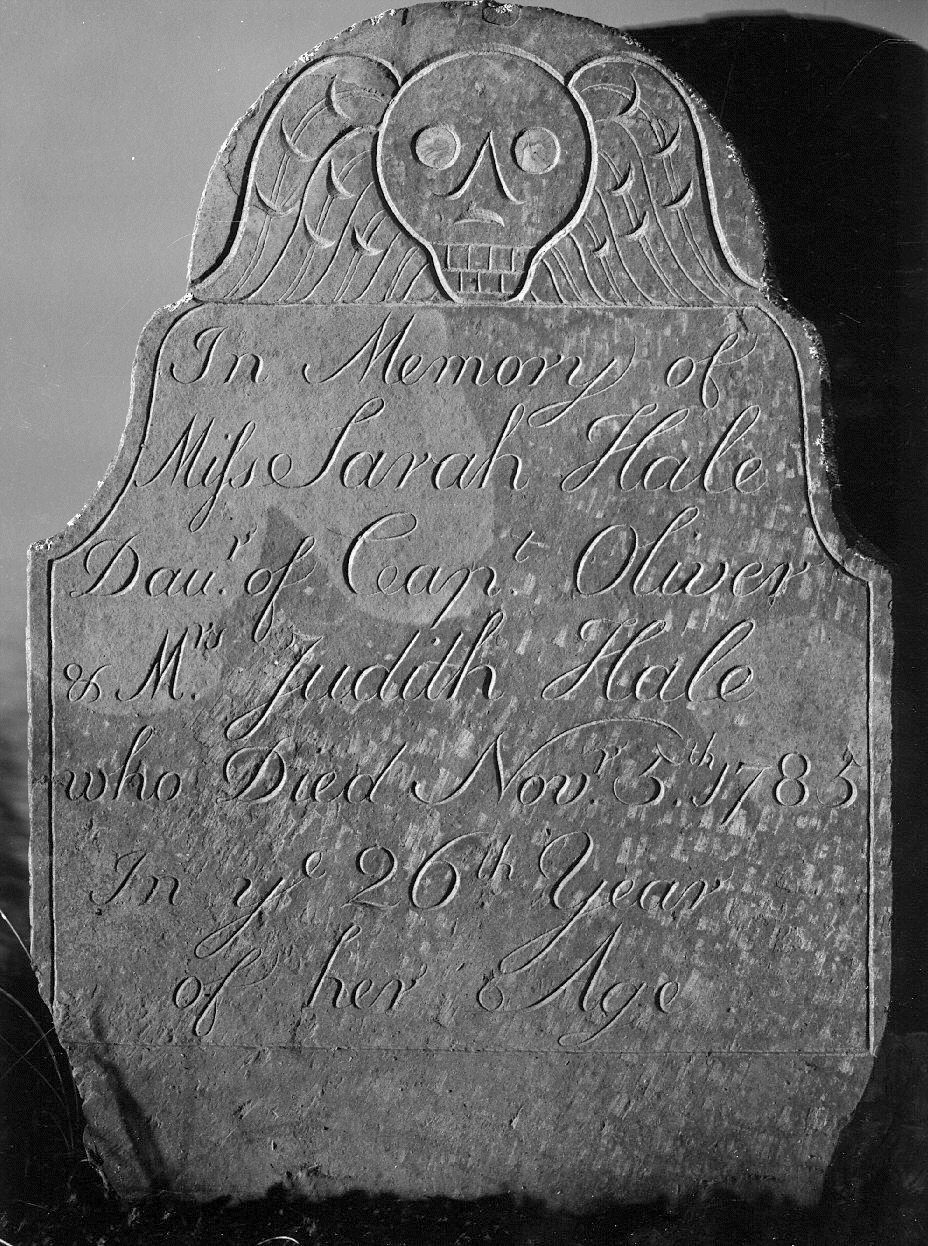 In Memory of
Miſs Sarah Hale
Dau.r of Capn.t Oliver
& Mrs. Judith Hale
who Died Nov.r 5.th 1785
In ye 26th Year
of her Age